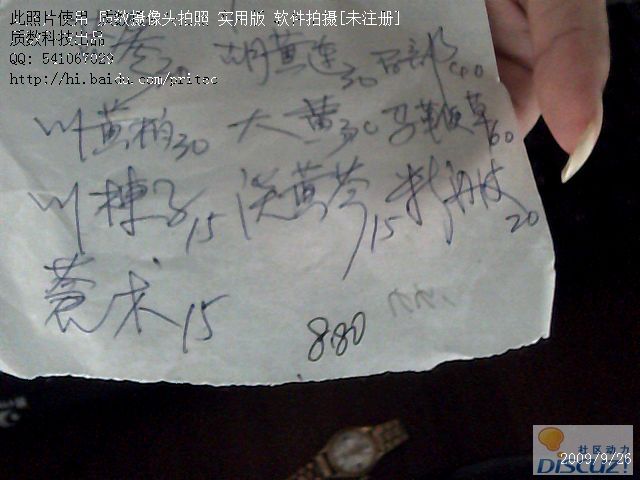 此照片使用 质数摄像头拍照 实用版 软件拍摄[未注册]
质数科技出品
QQ: 541067029
http://hi.baidu.com/pritec
胡黄连30
川黄柏30 大黄30 马鞭草60
川楝子15 淡黄芩15 粉丹皮20
苍术15
880
社区动力
DISCUZ!
2009/9/26